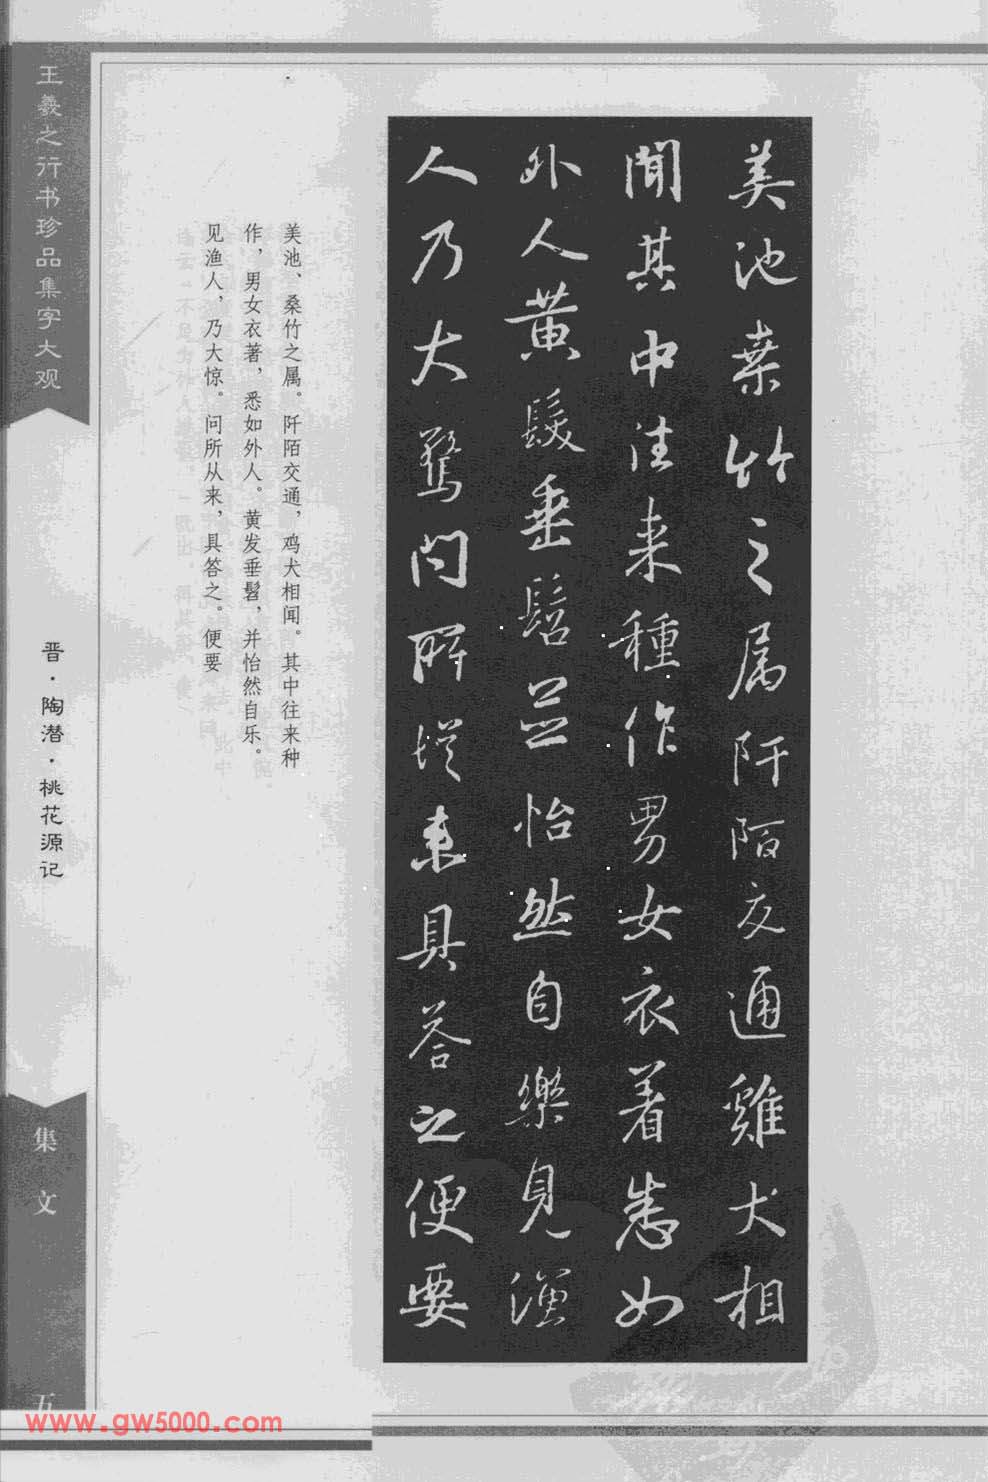 美池桑竹之属阡陌交通雞犬相
聞其中往来種作男女衣着悉如
外人黄髮垂髫並怡然自樂見漁
人乃大驚問所從来具答之便要
美池、桑竹之属。阡陌交通，鸡犬相闻。其中往来种
作，男女衣著，悉如外人。黄发垂髫，并怡然自乐。
见渔人，乃大惊。问所从来，具答之。便要
王羲之行书珍品集字大观
晋·陶潜·桃花源记
集文
五
www.gw5000.com